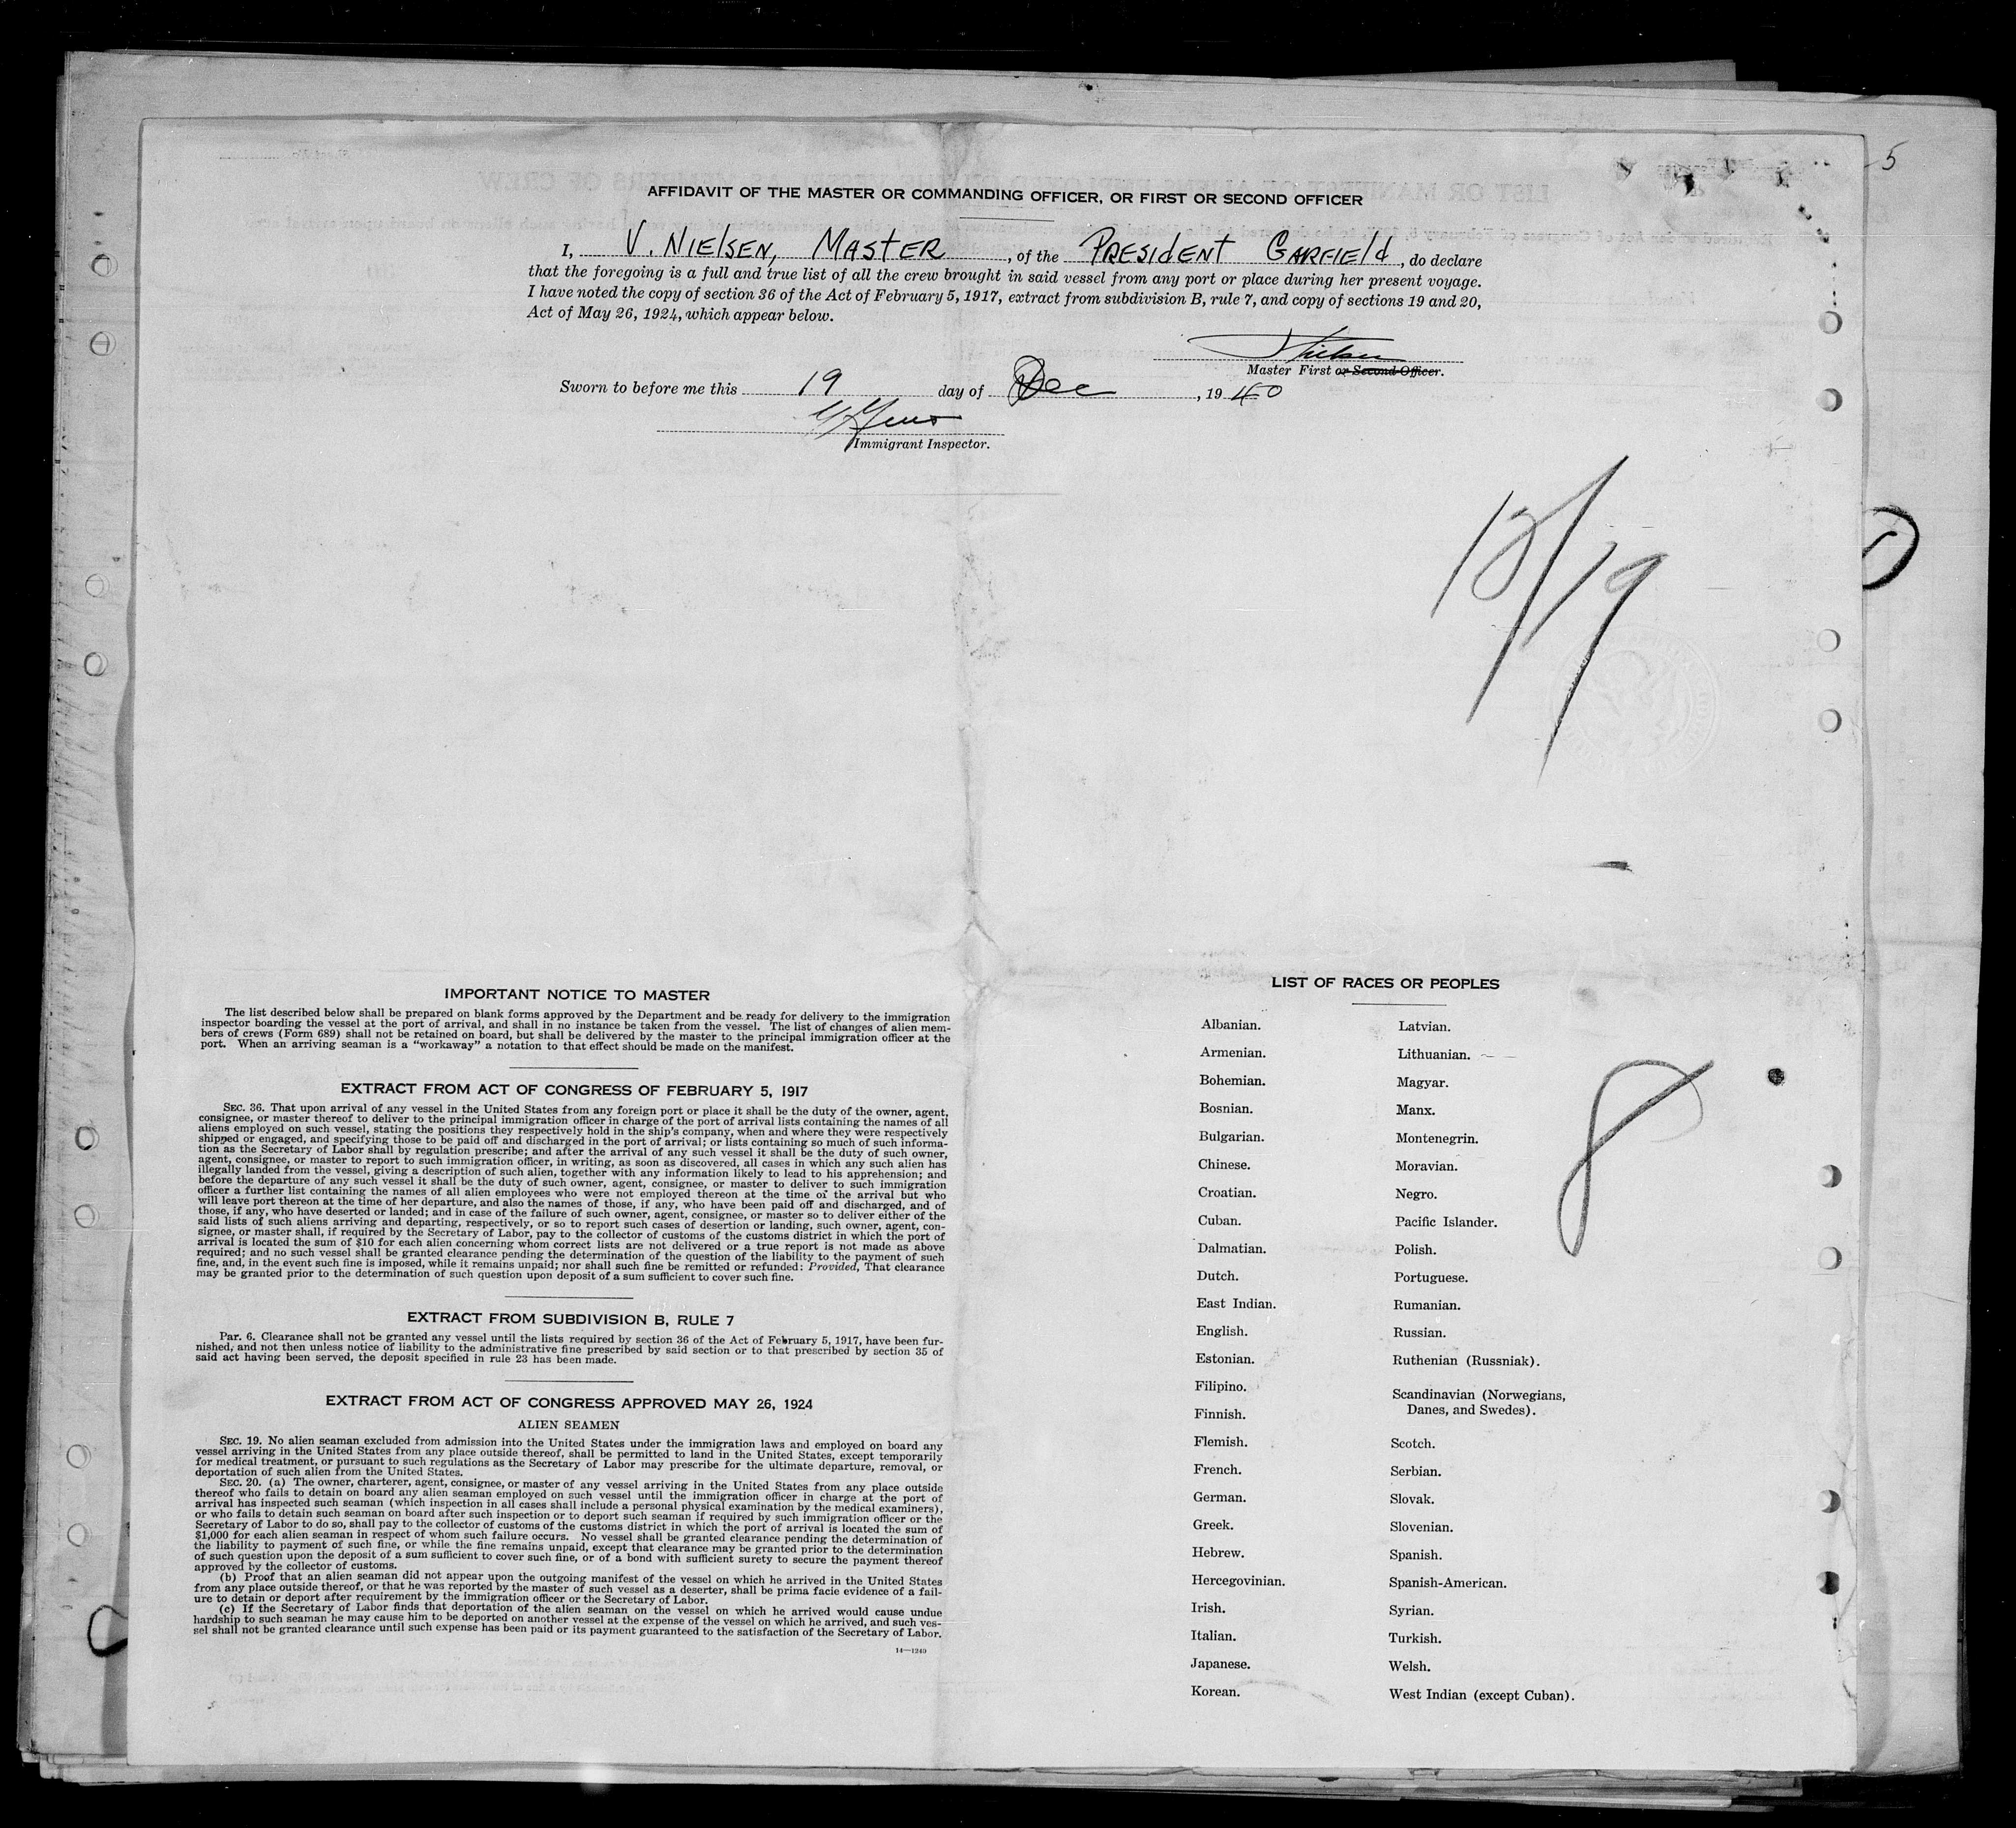 5
AFFIDAVIT OF THE MASTER OR COMMANDING OFFICER, OR FIRST OR SECOND OFFICER
I, V. NIELSEN, MASTER, of the PRESIDENT GARFIELD, do declare
that the foregoing is a full and true list of all the crew brought in said vessel from any port or place during her present voyage.
I have noted the copy of section 36 of the Act of February 5, 1917, extract from subdivision B, rule 7, and copy of sections 19 and 20,
Act of May 26, 1924, which appear below.
Master First or Second Officer.
Sworn to before me this 19 day of Dec, 1940
Immigrant Inspector.
12/19
IMPORTANT NOTICE TO MASTER
The list described below shall be prepared on blank forms approved by the Department and be ready for delivery to the immigration
inspector boarding the vessel at the port of arrival, and shall in no instance be taken from the vessel. The list of changes of alien mem-
bers of crews (Form 689) shall not be retained on board, but shall be delivered by the master to the principal immigration officer at the
port. When an arriving seaman is a "workaway" a notation to that effect should be made on the manifest.
EXTRACT FROM ACT OF CONGRESS OF FEBRUARY 5, 1917
SEC. 36. That upon arrival of any vessel in the United States from any foreign port or place it shall be the duty of the owner, agent,
consignee, or master thereof to deliver to the principal immigration officer in charge of the port of arrival lists containing the names of all
aliens employed on such vessel, stating the positions they respectively hold in the ship's company, when and where they were respectively
shipped or engaged, and specifying those to be paid off and discharged in the port of arrival; or lists containing so much of such informa-
tion as the Secretary of Labor shall by regulation prescribe; and after the arrival of any such vessel it shall be the duty of such owner,
agent, consignee, or master to report to such immigration officer, in writing, as soon as discovered, all cases in which any such alien has
illegally landed from the vessel, giving a description of such alien, together with any information likely to lead to his apprehension; and
before the departure of any such vessel it shall be the duty of such owner, agent, consignee, or master to deliver to such immigration
officer a further list containing the names of all alien employees who were not employed thereon at the time of the arrival but who
will leave port thereon at the time of her departure, and also the names of those, if any, who have been paid off and discharged, and of
those, if any, who have deserted or landed; and in case of the failure of such owner, agent, consignee, or master so to deliver either of the
said lists of such aliens arriving and departing, respectively, or so to report such cases of desertion or landing, such owner, agent, con-
signee, or master shall, if required by the Secretary of Labor, pay to the collector of customs of the customs district in which the port of
arrival is located the sum of $10 for each alien concerning whom correct lists are not delivered or a true report is not made as above
required; and no such vessel shall be granted clearance pending the determination of the question of the liability to the payment of such
fine, and, in the event such fine is imposed, while it remains unpaid; nor shall such fine be remitted or refunded: Provided, That clearance
may be granted prior to the determination of such question upon deposit of a sum sufficient to cover such fine.
EXTRACT FROM SUBDIVISION B, RULE 7
Par. 6. Clearance shall not be granted any vessel until the lists required by section 36 of the Act of February 5, 1917, have been fur-
nished, and not then unless notice of liability to the administrative fine prescribed by said section or to that prescribed by section 35 of
said act having been served, the deposit specified in rule 23 has been made.
EXTRACT FROM ACT OF CONGRESS APPROVED MAY 26, 1924
ALIEN SEAMEN
SEC. 19. No alien seaman excluded from admission into the United States under the immigration laws and employed on board any
vessel arriving in the United States from any place outside thereof, shall be permitted to land in the United States, except temporarily
for medical treatment, or pursuant to such regulations as the Secretary of Labor may prescribe for the ultimate departure, removal, or
deportation of such alien from the United States.
SEC. 20. (a) The owner, charterer, agent, consignee, or master of any vessel arriving in the United States from any place outside
thereof who fails to detain on board any alien seaman employed on such vessel until the immigration officer in charge at the port of
arrival has inspected such seaman (which inspection in all cases shall include a personal physical examination by the medical examiners),
or who fails to detain such seaman on board after such inspection or to deport such seaman if required by such immigration officer or the
Secretary of Labor to do so, shall pay to the collector of customs of the customs district in which the port of arrival is located the sum of
$1,000 for each alien seaman in respect of whom such failure occurs. No vessel shall be granted clearance pending the determination of
the liability to payment of such fine, or while the fine remains unpaid, except that clearance may be granted prior to the determination
of such question upon the deposit of a sum sufficient to cover such fine, or of a bond with sufficient surety to secure the payment thereof
approved by the collector of customs.
(b) Proof that an alien seaman did not appear upon the outgoing manifest of the vessel on which he arrived in the United States
from any place outside thereof, or that he was reported by the master of such vessel as a deserter, shall be prima facie evidence of a fail-
ure to detain or deport after requirement by the immigration officer or the Secretary of Labor.
(c) If the Secretary of Labor finds that deportation of the alien seaman on the vessel on which he arrived would cause undue
hardship to such seaman he may cause him to be deported on another vessel at the expense of the vessel on which he arrived, and such ves-
sel shall not be granted clearance until such expense has been paid or its payment guaranteed to the satisfaction of the Secretary of Labor.
14—1249
LIST OF RACES OR PEOPLES
Albanian.
Armenian.
Bohemian.
Bosnian.
Bulgarian.
Chinese.
Croatian.
Cuban.
Dalmatian.
Dutch.
East Indian.
English.
Estonian.
Filipino.
Finnish.
Flemish.
French.
German.
Greek.
Hebrew.
Hercegovinian.
Irish.
Italian.
Japanese.
Korean.
Latvian.
Lithuanian.
Magyar.
Manx.
Montenegrin.
Moravian.
Negro.
Pacific Islander.
Polish.
Portuguese.
Rumanian.
Russian.
Ruthenian (Russniak).
Scandinavian (Norwegians,
Danes, and Swedes).
Scotch.
Serbian.
Slovak.
Slovenian.
Spanish.
Spanish-American.
Syrian.
Turkish.
Welsh.
West Indian (except Cuban).
8